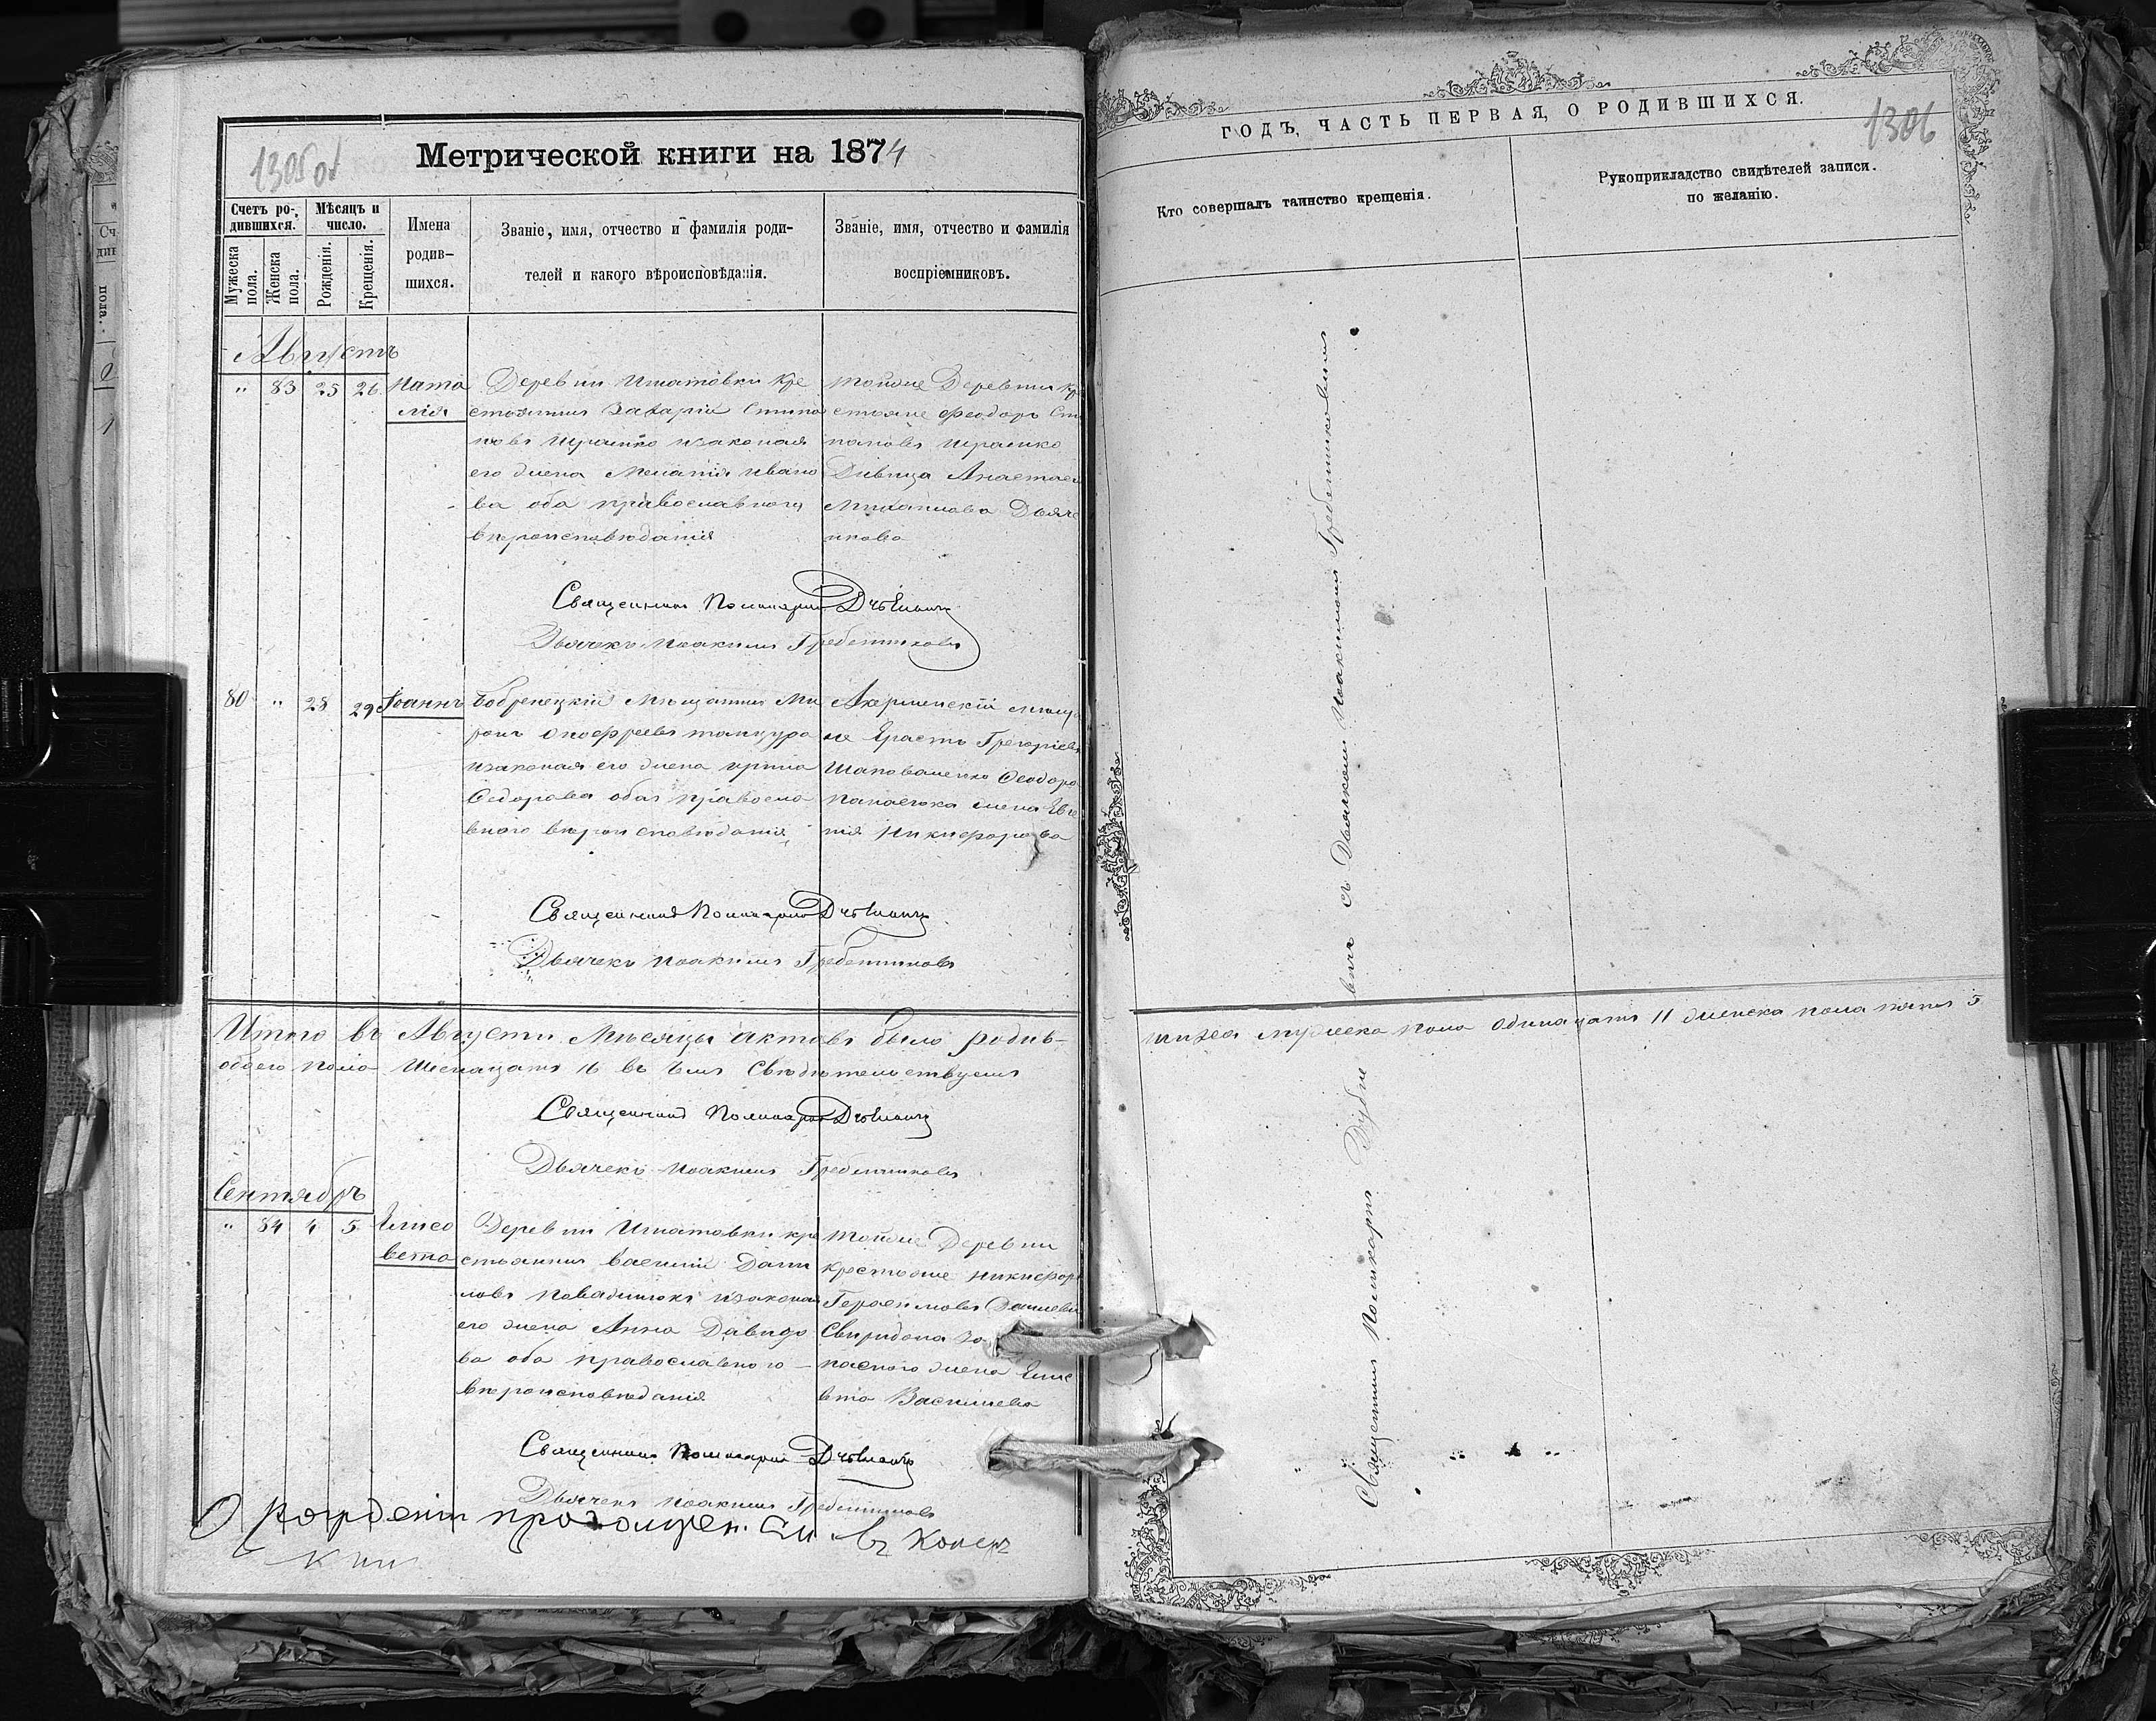 1305об
Метрической книги на 1874
Счетъ ро-
дившихся.
Мѣсяцъ и
число.
Мужеска
пола.
Женска
пола.
Рожденія.
Крещенія.
Имена
родив-
шихся.
Званіе, имя, отчество и фамилія роди-
телей и какого вѣроисповѣданія.
Званіе, имя, отчество и фамилія
воспріемниковъ.
Августъ
" 83 25 26 Ната
лія
Деревни Игнатовки кре
стьянинъ Захарій Степа
новъ Ищенко изаконая
его жена Меланія Ивано
ва оба православного
вѣроисповѣданія
тойже Деревни кр
стьяне Феодоръ Сте
пановъ Ищенко
Дѣвица Анастасі
Михаилова Дьяче
нкова
Священникъ Поликарпъ
Дьячекъ Иоакимъ Гребенниковъ
80 " 28 29 Іоаннъ
Бобринецкій Мѣщанинъ Ми
ронъ Онофріевъ
изаконая его жена Ирина
Федорова оба правосла
вного вѣроисповѣданія
Акерменскій мѣща
не Ерастъ Григоріевъ
Шаповаленко Феодора
жена Евге
нія Никифорова
Священникъ Поликарпъ
Дьячекъ Иоакимъ Гребенниковъ
Итого въ Августѣ Мѣсяцы актовъ было родив-
обоего пола Шеснацать 16 въ чемъ Свѣдѣтельствуемъ
Священникъ Поликарпъ
Дьячекъ Иоакимъ Гребенниковъ
Сентябръ
" 84 4 5 Елисо
вета
Деревни Игнатовки кре
стьянинъ Василій Дани
ловъ изаконая
его жена Анна Давидо
ва оба православного
вѣроисповѣданія
тойже Деревни
крестьяне Никифоръ
Герасимовъ
Свиридона
пасного жена Елис
вта Васильева
Священникъ Поликарпъ
Дьячекъ Иоакимъ Гребенниковъ
О рожденіи продолжен. см. въ конец
кни
ГОДЪ, ЧАСТЬ ПЕРВАЯ, О РОДИВШИХСЯ.
1306
Кто совершалъ таинство крещенія.
Рукоприкладство свидѣтелей записи.
по желанію.
Священникъ Поликарпъ Дубневичъ съ Дьячкомъ Иоакимомъ Гребенниковымъ
шихся мужеска пола одинацать 11 женска пола пять 5